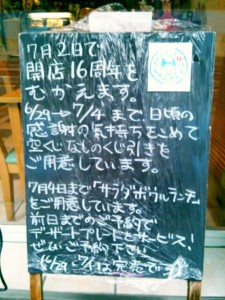 7月2日で
開店16周年を
むかえます。
6/29→7/4まで、日頃の
感謝の気持ちをこめて
空くじなしのくじ引きを
ご用意しています。
7月4日まで「サラダボウルランチ」
をご用意しています。
前日までのご予約で
デザートプレートをサービス!
ぜひご予約下さい
6/29〜7/1は完売です